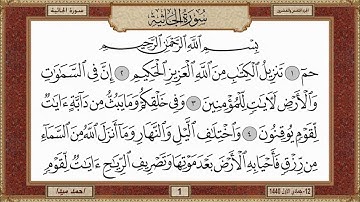 الجزء الخامس والعشرين
سورة الجاثية
سُورَةُ الجَاثِيَةِ
بِسْمِ اللَّهِ الرَّحْمَٰنِ الرَّحِيمِ
حمٓ ١ تَنزِيلُ ٱلْكِتَٰبِ مِنَ ٱللَّهِ ٱلْعَزِيزِ ٱلْحَكِيمِ ٢ إِنَّ فِى ٱلسَّمَٰوَٰتِ
وَٱلْأَرْضِ لَءَايَٰتٍ لِّلْمُؤْمِنِينَ ٣ وَفِى خَلْقِكُمْ وَمَا يَبُثُّ مِن دَآبَّةٍ ءَايَٰتٌ
لِّقَوْمٍ يُوقِنُونَ ٤ وَٱخْتِلَٰفِ ٱلَّيْلِ وَٱلنَّهَارِ وَمَآ أَنزَلَ ٱللَّهُ مِنَ ٱلسَّمَآءِ
مِن رِّزْقٍ فَأَحْيَا بِهِ ٱلْأَرْضَ بَعْدَ مَوْتِهَا وَتَصْرِيفِ ٱلرِّيَٰحِ ءَايَٰتٌ لِّقَوْمٍ
12-جمادى الأول 1440
1